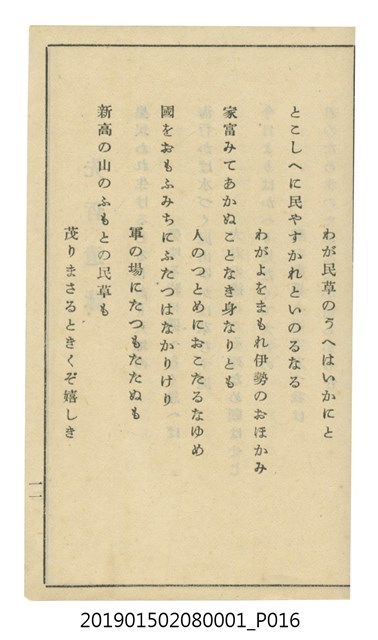 わが民草のうへはいかにと
とこしへに民やすかれといのるなる
わがよをまもれ伊勢のおほかみ
家富みてあかぬことなき身なりとも
人のつとめにおこたるなゆめ
國をおもふみちにふたつはなかりけり
軍の場にたつもたたぬも
新高の山のふもとの民草も
茂りまさるときくぞ嬉しき
一一
201901502080001_P016